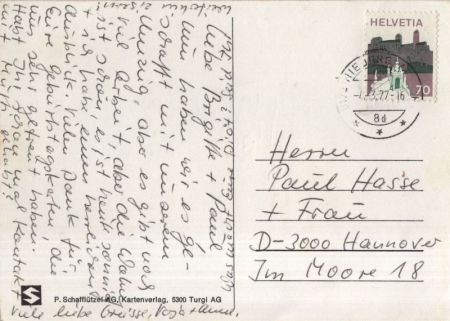 Liebe Brigitte + Paul
Nun haben wir es ge-
schafft mit unserem
Umzug, also es gibt noch
viel Arbeit, aber die Wohnung
ist schön, es ist heute sonnig
+ ich habe einen herrlichen
Ausblick. Vielen Dank für
Eure Geburtstagskarten, die
uns sehr gefreut haben.
Habt Ihr mal Kontakt
mit gehabt?
viele liebe Grüsse,
HELVETIA
70
8d
Herrn
Paul Hasse
+ Frau
D-3000 Hannover
Im Moore 18
S
P. Schafflützel AG, Kartenverlag, 5300 Turgi AG